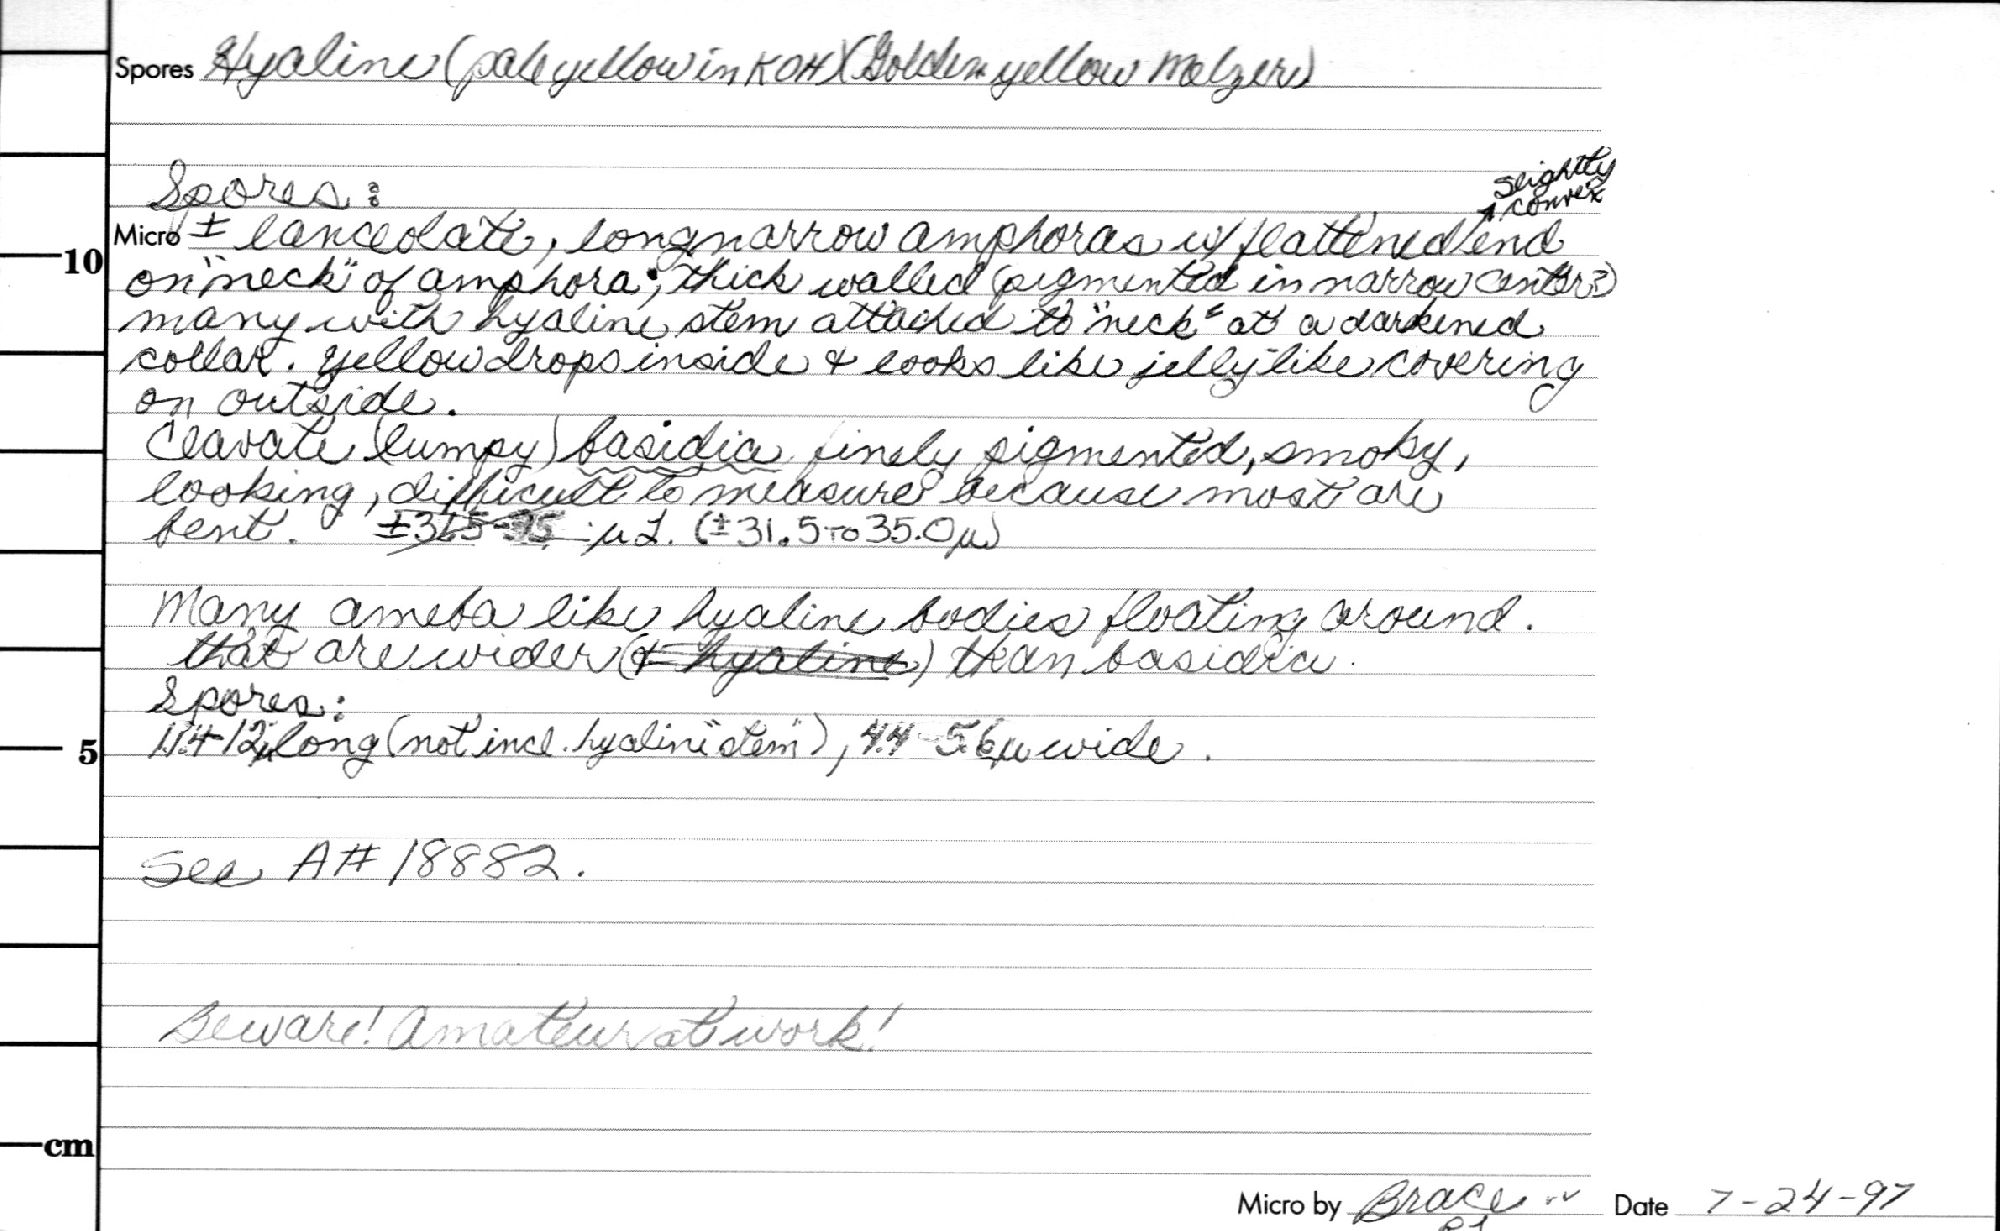 Spores Hyaline (pale yellow in KOH) (Golden yellow Melzers)
Spores:
slightly
convex
Micro ± lanceolate, long narrow amphoras w/ flattened end
on "neck" of amphora; thick walled (pigmented in narrow center?)
many with hyaline stem attached to "neck" at a darkened
10
collar. yellow drops inside & looks like jelly like covering
on outside.
Clavate (lumpy) basidia finely pigmented, smoky,
looking, difficult to measure because most are
bent. ±31.5-35 µ L. (±31.5 to 35.0µ)
Many ameba like hyaline bodies floating around.
that are wider (± hyaline) than basidia.
Spores:
11.4-12µ long (not incl. hyaline "stem"), 4.4-5.6µ wide.
5
See A# 18882.
Beware! Amateur at work!
cm
Micro by Brace Date 7-24-97